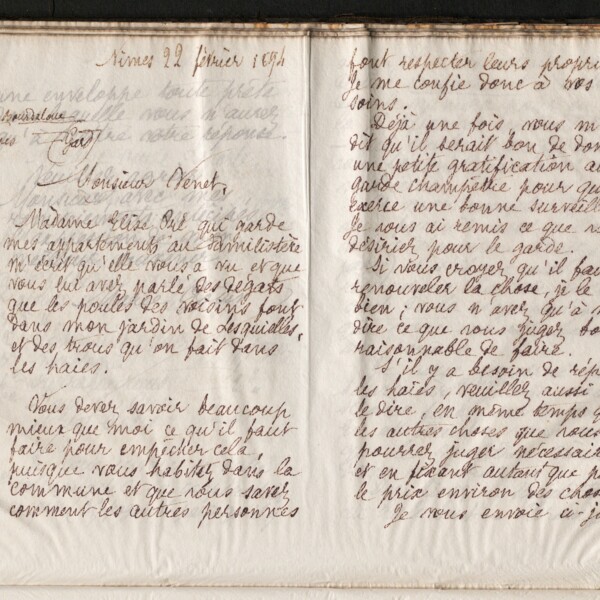 Nîmes 22 février 1894
Monsieur Venet,
Madame Elise Pré qui garde
mes appartements au Familistère
m'écrit qu'elle vous a vu et que
vous lui avez parlé des dégats
que les poules des voisins font
dans mon jardin de Lesquielles,
et des trous qu'on fait dans
les haies.
Vous devez savoir beaucoup
mieux que moi ce qu'il faut
faire pour empêcher cela,
puisque vous habitez dans la
commune et que vous savez
comment les autres personnes
font respecter leurs propri
Je me confie donc à vos
soins.
Déjà une fois, vous m
dit qu'il serait bon de don
une petite gratification au
garde champêtre pour qu
exerce une bonne surveill
Je vous ai remis ce que v
désiriez pour le garde.
Si vous croyez qu'il fau
renouveler la chose, je le
bien; vous n'avez qu'à m
dire ce que vous jugez bo
raisonnable de faire.
S'il y a besoin de rép
les haies, veuillez aussi
le dire, en même temps q
les autres choses que vous
pourrez juger nécessair
et en fixant autant que po
le prix environ des chos
Je vous envoie ci-jo